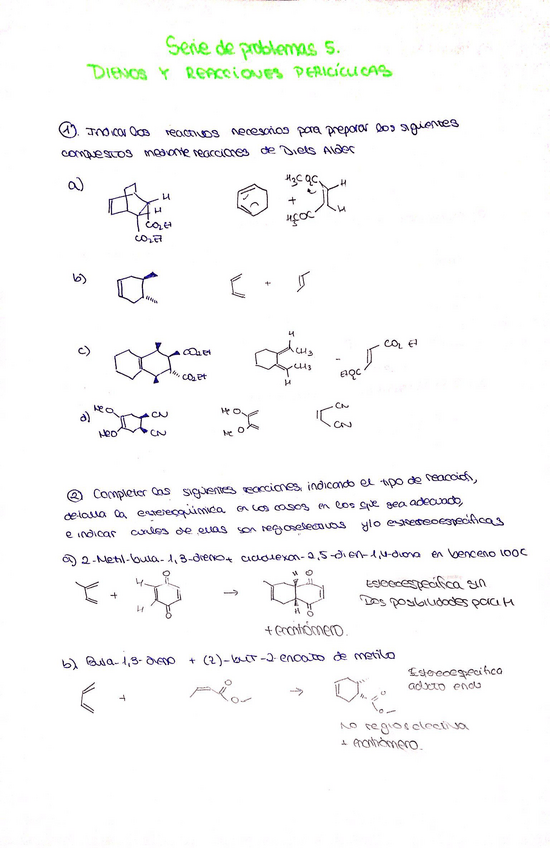 Serie de problemas 5.
DIENOS Y REACCIONES PERICÍCLICAS
①. Indicar los reactivos necesarios para preparar los siguientes
compuestos mediante reacciones de Diels Alder
a)
H
H
CO₂Et
CO₂Et
+
H
H
b)
+
c)
CO₂Et
CO₂Et
H
CH₃
CH₃
H
CO₂Et
d)
MeO
MeO
CN
CN
MeO
MeO
CN
CN
② Completar las siguientes reacciones, indicando el tipo de reacción,
detalla la estereoquímica en los casos en los que sea adecuado,
e indicar cuales de ellas son regioselectivas y/o estereoespecíficas
a) 2-Metil-buta-1,3-dieno + ciclohexan-2,5-dien-1,4-diona en benceno 100C
+
H
H
O
O
→
H
H
O
O
Estereoespecífica sin
Dos posibilidades para H
+ enantiómero.
b) Buta-1,3-dieno + (2)-but-2-enoato de metilo
+
O
O
→
O
O
Estereoespecífica
aducto endo
No regioselectiva
+ enantiómero.